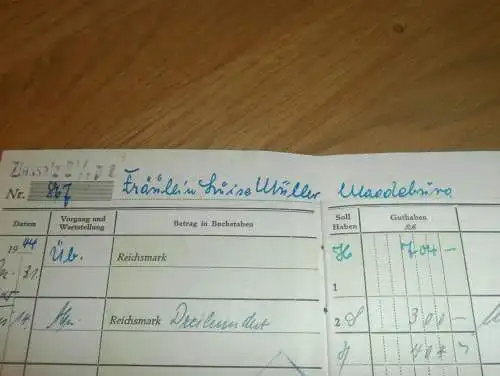 Nr. 867 Fräulein Luise Müller Magdeburg
Datum Vorgang und Wertstellung Betrag in Buchstaben Soll Haben Guthaben
1944 Üb. Reichsmark H 704 –
31. 1
Reichsmark Dreihundert 2 S 300 –
404